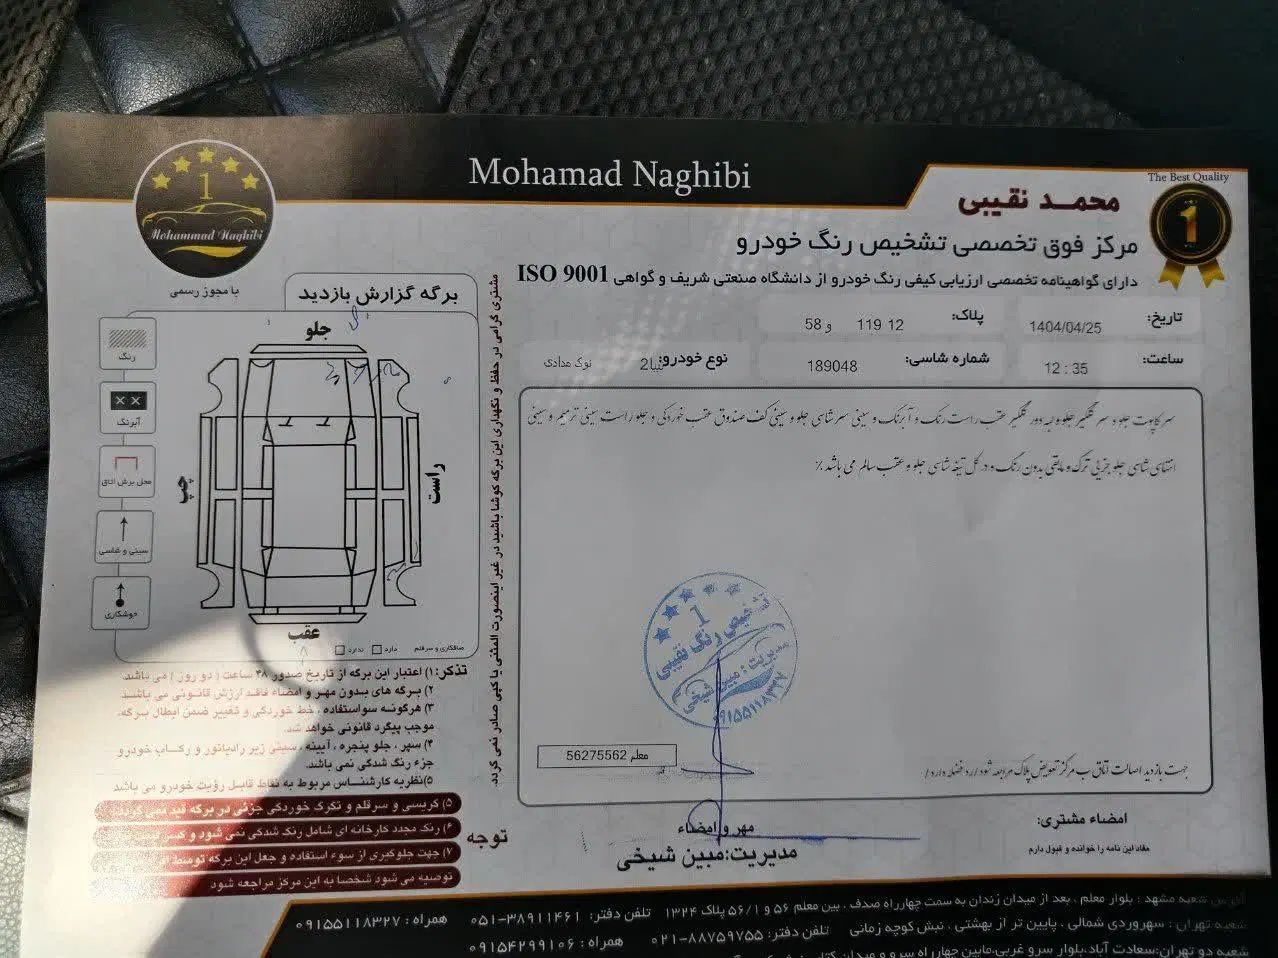 Mohamad Naghibi
The Best Quality
1
محمد نقیبی
مرکز فوق تخصصی تشخیص رنگ خودرو
دارای گواهینامه تخصصی ارزیابی کیفی رنگ خودرو از دانشگاه صنعتی شریف و گواهی ISO 9001
1
Mohammad Naghibi
با مجوز رسمی
تاریخ: 1404/04/25
پلاک: 12 119 و 58
ساعت: 12 : 35
شماره شاسی: 189048
نوع خودرو: تیبا2 نوک مدادی
سر کاپوت جلو و سر گلگیر جلو و لبه دور گلگیر عقب راست رنگ و آبرنگ و سینی سر شاسی جلو و سینی کف صندوق عقب خوردگی و جلو راست سینی ترمیم و سینی
انتهای شاسی جلو جزئی ترک و مابقی بدون رنگ و در کل تیغه شاسی جلو و عقب سالم می باشد٪
جهت بازدید اصالت اتاق به مرکز تعویض پلاک مراجعه شود
معلم 56275562
1
تشخیص رنگ نقیبی
مدیریت: مبین شیخی
۰۹۱۵۵۱۱۸۳۲۷
امضاء مشتری:
مفاد این نامه را خوانده و قبول دارم
مهر و امضاء
مدیریت: مبین شیخی
برگه گزارش بازدید
جلو
راست
چپ
عقب
رنگ
آبرنگ
محل برش اتاق
سینی و شاسی
جوشکاری
صافکاری و سرقلم دارد ندارد
مشتری گرامی در حفظ و نگهداری این برگه کوشا باشید در غیر اینصورت المثنی یا کپی صادر نمی گردد.
تذکر: ۱) اعتبار این برگه از تاریخ صدور ۴۸ ساعت ( دو روز ) می باشد.
۲) برگه های بدون مهر و امضاء فاقد ارزش قانونی می باشد.
۳) هرگونه سواستفاده ، خط خوردگی و تغییر ضمن ابطال برگه،
موجب پیگرد قانونی خواهد شد.
۴) سپر ، جلو پنجره ، آیینه ، سینی زیر رادیاتور و رکاب خودرو
جزء رنگ شدگی نمی باشد.
۵) نظریه کارشناس مربوط به نقاط قابل رؤیت خودرو می باشد
توجه
۵) کریسی و سرقلم و تگرگ خوردگی جزئی در برگه قید نمی گردد
۶) رنگ مجدد کارخانه ای شامل رنگ شدگی نمی شود و
۷) جهت جلوگیری از سوء استفاده و جعل این برگه توسط
توصیه می شود شخصا به این مرکز مراجعه شود
آدرس شعبه مشهد : بلوار معلم ، بعد از میدان زندان به سمت چهارراه صدف ، بین معلم ۵۶ و ۵۶/۱ پلاک ۱۳۲۴ تلفن دفتر: ۰۵۱-۳۸۹۱۱۴۶۱ همراه : ۰۹۱۵۵۱۱۸۳۲۷
شعبه تهران : سهروردی شمالی ، پایین تر از بهشتی ، نبش کوچه زمانی تلفن دفتر: ۰۲۱-۸۸۷۵۹۷۵۵ همراه : ۰۹۱۵۴۲۹۹۱۰۶
شعبه دو تهران:سعادت آباد،بلوار سرو غربی،مابین چهارراه سرو و میدان